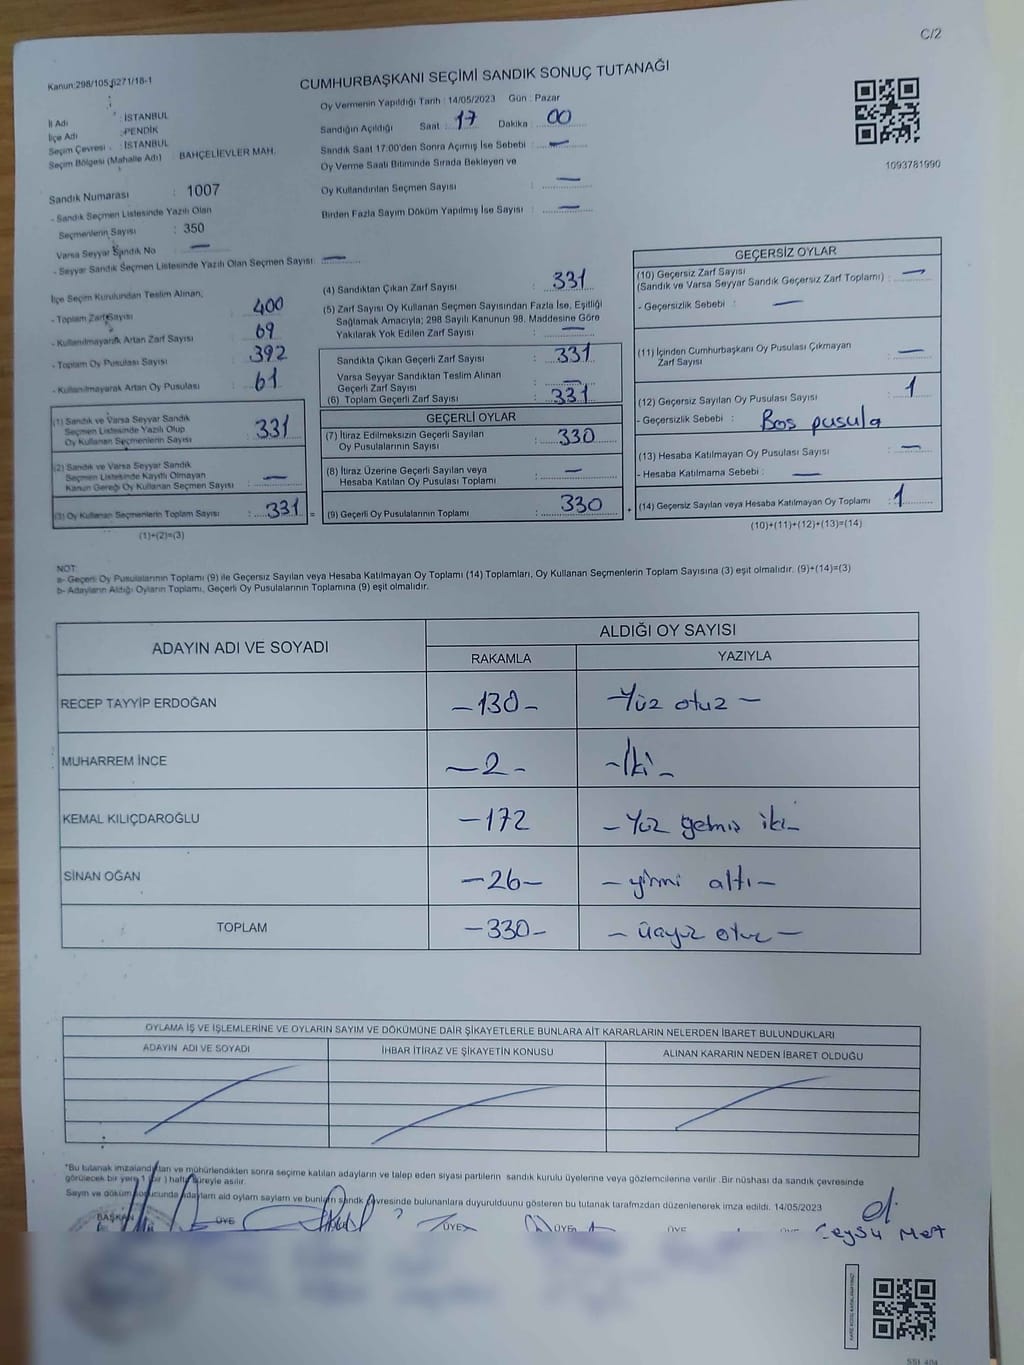 C/2
Kanun:298/105,6271/18-1
CUMHURBAŞKANI SEÇİMİ SANDIK SONUÇ TUTANAĞI
İl Adı : İSTANBUL
İlçe Adı : PENDİK
Seçim Çevresi : İSTANBUL
Seçim Bölgesi (Mahalle Adı) : BAHÇELİEVLER MAH.
Sandık Numarası : 1007
- Sandık Seçmen Listesinde Yazılı Olan
Seçmenlerin Sayısı : 350
Varsa Seyyar Sandık No —
- Seyyar Sandık Seçmen Listesinde Yazılı Olan Seçmen Sayısı: —
Oy Vermenin Yapıldığı Tarih : 14/05/2023 Gün : Pazar
Sandığın Açıldığı Saat : 17 Dakika : 00
Sandık Saat 17:00'den Sonra Açımış İse Sebebi : —
Oy Verme Saati Bitiminde Sırada Bekleyen ve
Oy Kullandırılan Seçmen Sayısı : —
Birden Fazla Sayım Döküm Yapılmış İse Sayısı : —
1093781990
İlçe Seçim Kurulundan Teslim Alınan;
- Toplam Zarf Sayısı : 400
- Kullanılmayarak Artan Zarf Sayısı : 69
- Toplam Oy Pusulası Sayısı : 392
- Kullanılmayarak Artan Oy Pusulası : 61
(1) Sandık ve Varsa Seyyar Sandık
Seçmen Listesinde Yazılı Olup
Oy Kullanan Seçmenlerin Sayısı : 331
(2) Sandık ve Varsa Seyyar Sandık
Seçmen Listesinde Kayıtlı Olmayan
Kanun Gereği Oy Kullanan Seçmen Sayısı : —
(3) Oy Kullanan Seçmenlerin Toplam Sayısı : 331 =
(1)+(2)=(3)
(4) Sandıktan Çıkan Zarf Sayısı : 331
(5) Zarf Sayısı Oy Kullanan Seçmen Sayısından Fazla İse, Eşitliği
Sağlamak Amacıyla; 298 Sayılı Kanunun 98. Maddesine Göre
Yakılarak Yok Edilen Zarf Sayısı : —
Sandıkta Çıkan Geçerli Zarf Sayısı : 331
Varsa Seyyar Sandıktan Teslim Alınan
Geçerli Zarf Sayısı : —
(6) Toplam Geçerli Zarf Sayısı : 331
GEÇERLİ OYLAR
(7) İtiraz Edilmeksizin Geçerli Sayılan
Oy Pusulalarının Sayısı : 330
(8) İtiraz Üzerine Geçerli Sayılan veya
Hesaba Katılan Oy Pusulası Toplamı : —
(9) Geçerli Oy Pusulalarının Toplamı : 330 +
GEÇERSİZ OYLAR
(10) Geçersiz Zarf Sayısı
(Sandık ve Varsa Seyyar Sandık Geçersiz Zarf Toplamı) : —
- Geçersizlik Sebebi : —
(11) İçinden Cumhurbaşkanı Oy Pusulası Çıkmayan
Zarf Sayısı : —
(12) Geçersiz Sayılan Oy Pusulası Sayısı : 1
- Geçersizlik Sebebi : Bos pusula
(13) Hesaba Katılmayan Oy Pusulası Sayısı : —
- Hesaba Katılmama Sebebi : —
(14) Geçersiz Sayılan veya Hesaba Katılmayan Oy Toplamı : 1
(10)+(11)+(12)+(13)=(14)
NOT:
a- Geçerli Oy Pusulalarının Toplamı (9) ile Geçersiz Sayılan veya Hesaba Katılmayan Oy Toplamı (14) Toplamları, Oy Kullanan Seçmenlerin Toplam Sayısına (3) eşit olmalıdır. (9)+(14)=(3)
b- Adayların Aldığı Oyların Toplamı, Geçerli Oy Pusulalarının Toplamına (9) eşit olmalıdır.
ADAYIN ADI VE SOYADI ALDIĞI OY SAYISI
RAKAMLA YAZIYLA
RECEP TAYYİP ERDOĞAN —130— —Yüz otuz—
MUHARREM İNCE —2— —İki—
KEMAL KILIÇDAROĞLU —172 —Yüz yetmiş iki—
SİNAN OĞAN —26— —yirmi altı—
TOPLAM —330— —üçyüz otuz—
OYLAMA İŞ VE İŞLEMLERİNE VE OYLARIN SAYIM VE DÖKÜMÜNE DAİR ŞİKAYETLERLE BUNLARA AİT KARARLARIN NELERDEN İBARET BULUNDUKLARI
ADAYIN ADI VE SOYADI İHBAR İTİRAZ VE ŞİKAYETİN KONUSU ALINAN KARARIN NEDEN İBARET OLDUĞU
"Bu tutanak imzalandıktan ve mühürlendikten sonra seçime katılan adayların ve talep eden siyasi partilerin sandık kurulu üyelerine veya gözlemcilerine verilir .Bir nüshası da sandık çevresinde
görülecek bir yere 1 (bir ) hafta süreyle asılır.
Sayım ve döküm sonucunda adayların aldığı oyların sayıları ve bunların sandık çevresinde bulunanlara duyurulduğunu gösteren bu tutanak tarafımızdan düzenlenerek imza edildi. 14/05/2023
BAŞKAN ÜYE ÜYE ÜYE ÜYE
Ceysu Mert